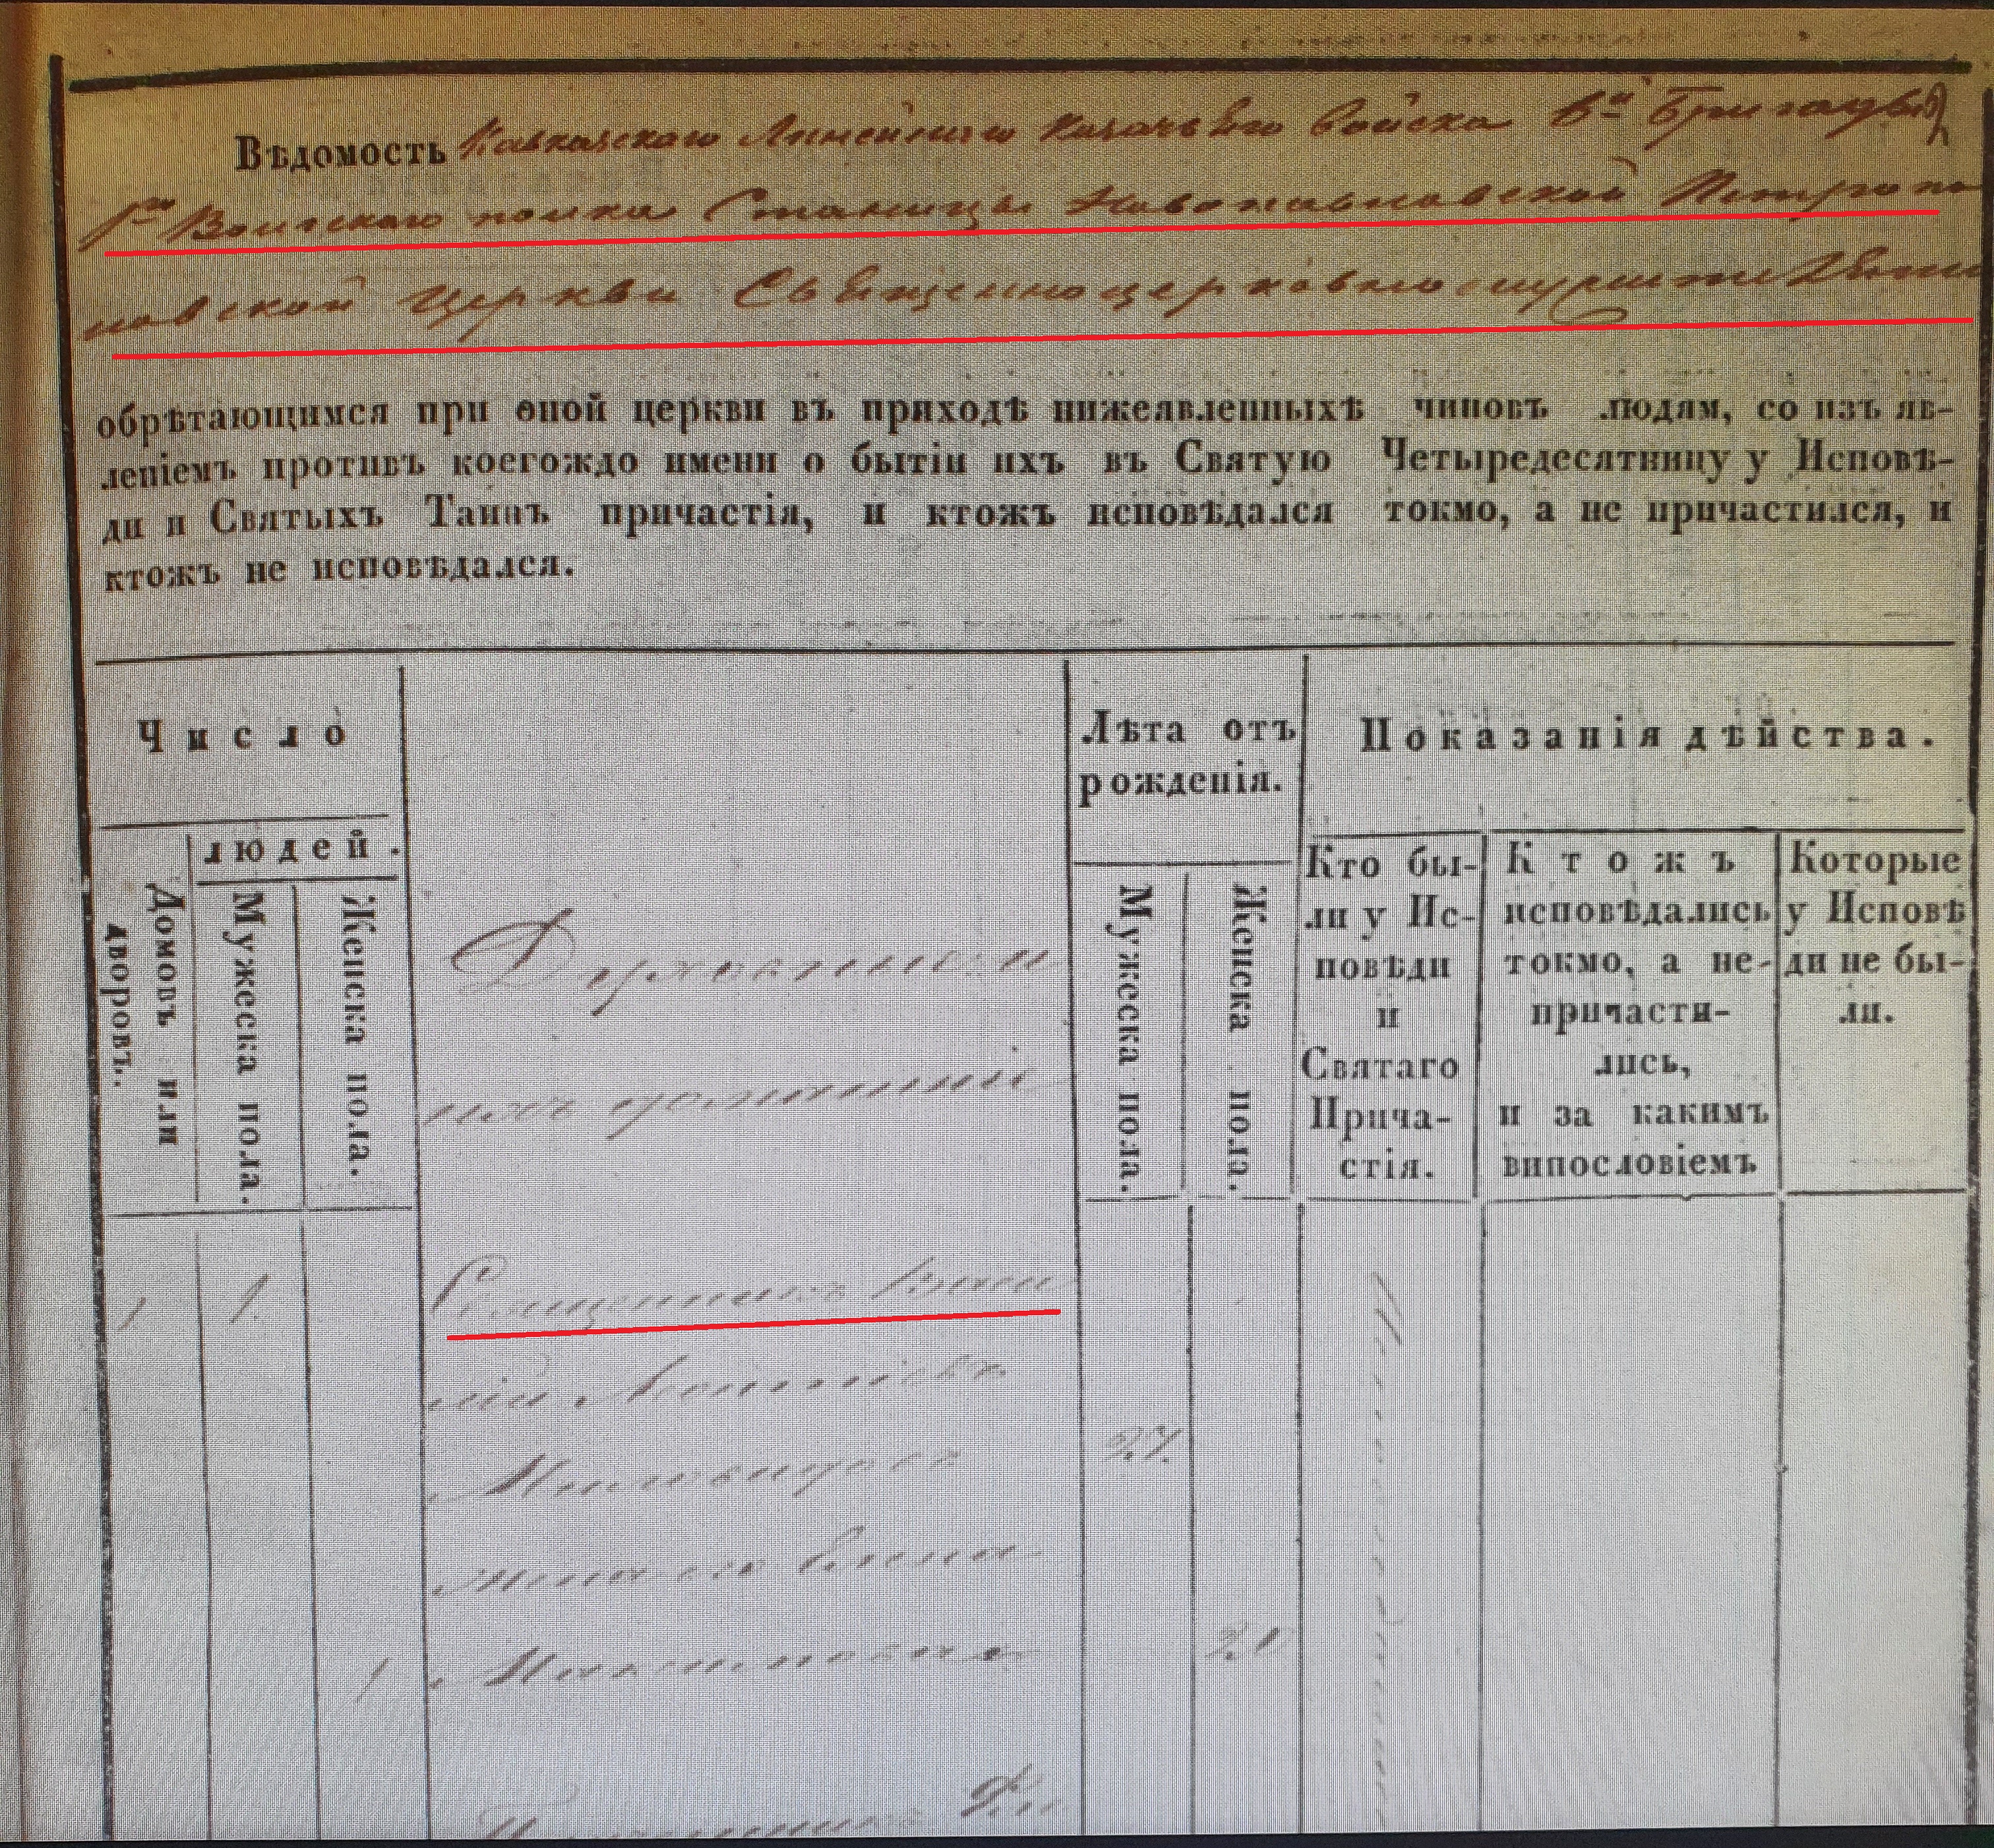 Вѣдомость Кавказскаго Линейнаго Казачьяго Войска 6й Бригады
1го Волгскаго полка Станицы Новопавловской Петропа
вловской Церкви Священноцерковнослужителями
обрѣтающимся при оной церкви въ приходѣ нижеявленныхѣ чиновъ людям, со изъ яв-
леніемъ противъ коегождо имени о бытіи ихъ въ Святую Четыредесятницу у Исповѣ-
ди и Святыхъ Таинъ причастія, и ктожъ исповѣдался токмо, а не причастился, и
ктожъ не исповѣдался.
Число
людей.
Домовъ или
дворовъ.
Мужеска пола.
Женска пола.
Духовныи
Лѣта отъ
рожденія.
Мужеска пола.
Женска пола.
Показанія дѣйства.
Кто бы-
ли у Ис-
повѣди
и
Святаго
Прича-
стія.
Ктожъ
исповѣдались
токмо, а не-
причасти-
лись,
и за какимъ
випословіемъ
Которые
у Исповѣ
ди не бы-
ли.
1 1. Священникъ
27.
Жена его
1 21